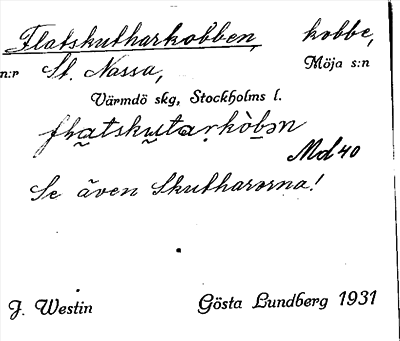 Flatskutharkobben, kobbe,
n:r St. Nassa, Möja s:n
Värmdö skg, Stockholms l.
Md 40
Se även Skutharorna!
J. Westin Gösta Lundberg 1931